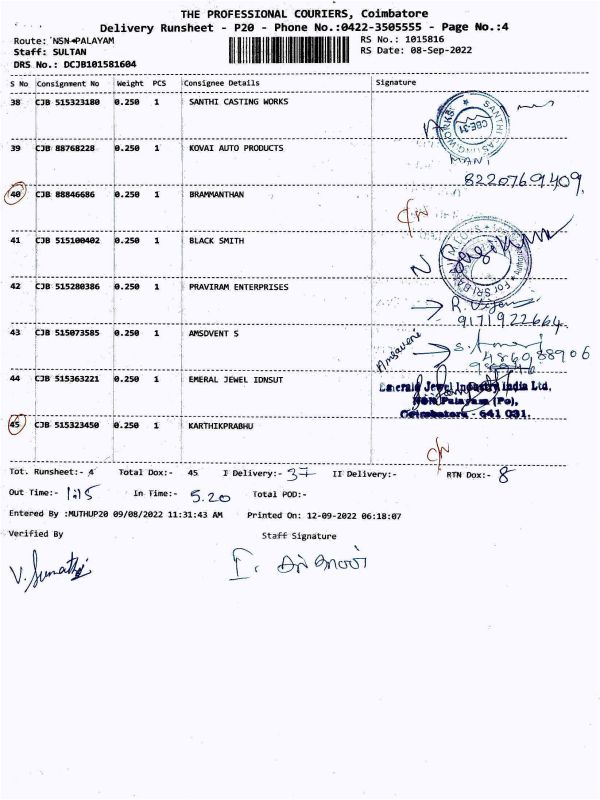 THE PROFESSIONAL COURIERS, Coimbatore
Delivery Runsheet - P20 - Phone No.:0422-3505555 - Page No.:4
Route: NSN PALAYAM
RS No.: 1015816
Staff: SULTAN
RS Date: 08-Sep-2022
DRS No.: DCJB101581604
S No Consignment No Weight PCS Consignee Details Signature
38 CJB 515323180 0.250 1 SANTHI CASTING WORKS
SANTHI CASTING WORKS CBE-31
39 CJB 88768228 0.250 1 KOVAI AUTO PRODUCTS
MANI
8220769409
40 CJB 88846686 0.250 1 BRAMMANTHAN
41 CJB 515100402 0.250 1 BLACK SMITH
42 CJB 515280386 0.250 1 PRAVIRAM ENTERPRISES
9171922664
43 CJB 515073585 0.250 1 AMSDVENT S
Amsaveni
44 CJB 515363221 0.250 1 EMERAL JEWEL IDNSUT
Emerald Jewel Industry India Ltd.
NSN Palayam (Po),
Coimbatore - 641 031.
45 CJB 515323450 0.250 1 KARTHIKPRABHU
Tot. Runsheet:- 4 Total Dox:- 45 I Delivery:- 37 II Delivery:- RTN Dox:- 8
Out Time:- 1:15 In Time:- 5.20 Total POD:-
Entered By :MUTHUP20 09/08/2022 11:31:43 AM Printed On: 12-09-2022 06:18:07
Verified By Staff Signature
V. Sumathi